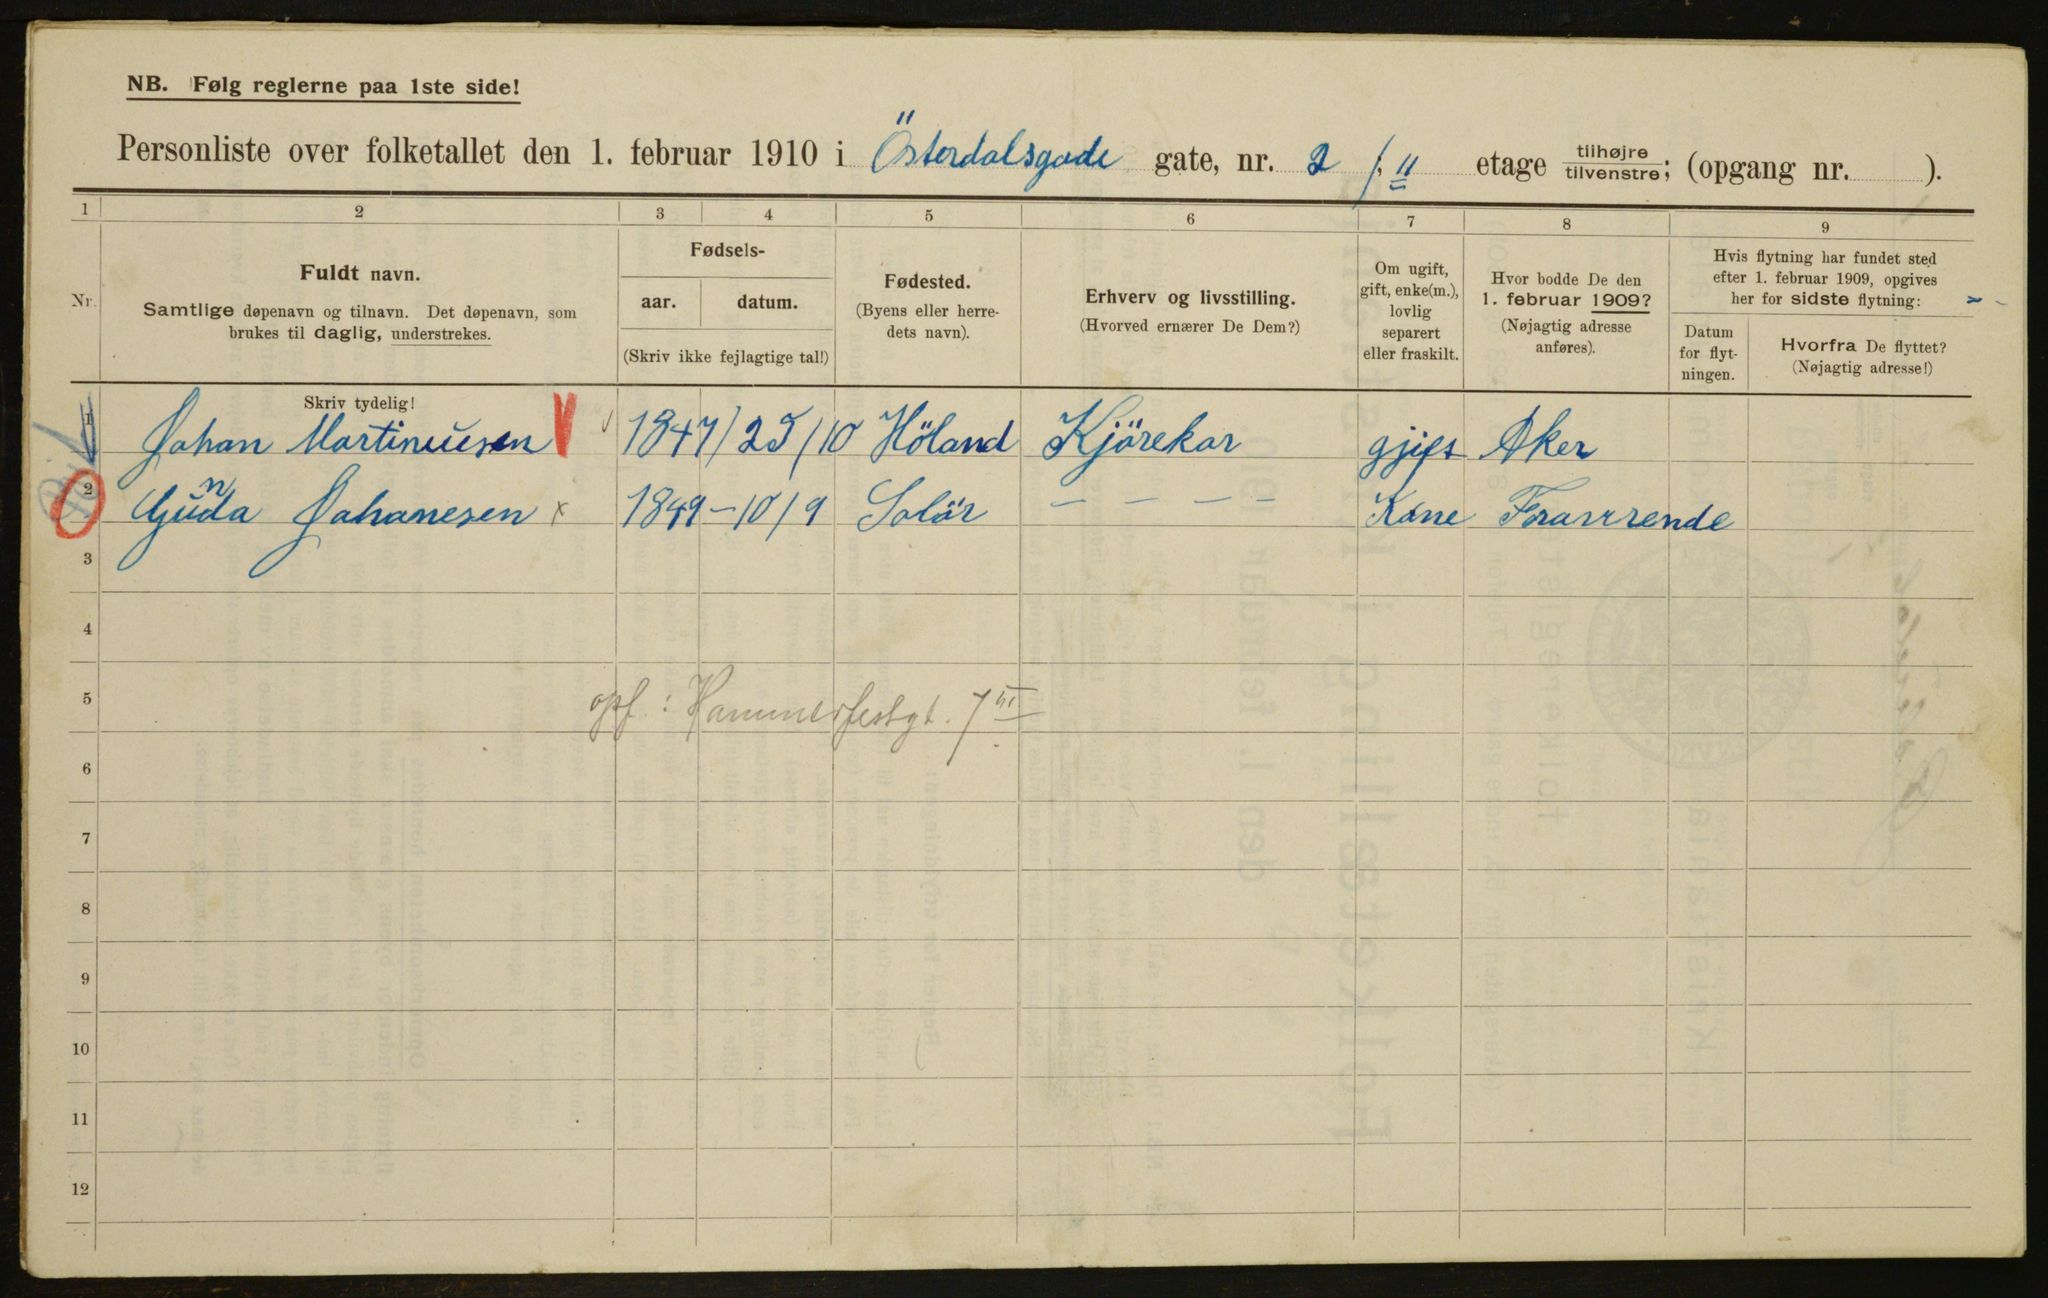 NB. Følg reglerne paa 1ste side!
Personliste over folketallet den 1. februar 1910 i Österdalsgade gate, nr. 2 /; II etage tilhøjre tilvenstre; (opgang nr. ).
1 2 3 4 5 6 7 8 9
Nr.
Fuldt navn.
Samtlige døpenavn og tilnavn. Det døpenavn, som
brukes til daglig, understrekes.
Skriv tydelig!
Fødsels-
aar. datum.
(Skriv ikke fejlagtige tal!)
Fødested.
(Byens eller herre-
dets navn).
Erhverv og livsstilling.
(Hvorved ernærer De Dem?)
Om ugift,
gift, enke(m.),
lovlig
separert
eller fraskilt.
Hvor bodde De den
1. februar 1909?
(Nøjagtig adresse
anføres).
Hvis flytning har fundet sted
efter 1. februar 1909, opgives
her for sidste flytning:
Datum
for flyt-
ningen.
Hvorfra De flyttet?
(Nøjagtig adresse!)
1 Johan Martinusen 1847/25/10 Höland Kjörekar gjift Aker
2 Gunda Johanesen x 1849–10/9 Solör – – – – Kone
3
4
5 opf: Hammerfestgt. 7 III
6
7
8
9
10
11
12